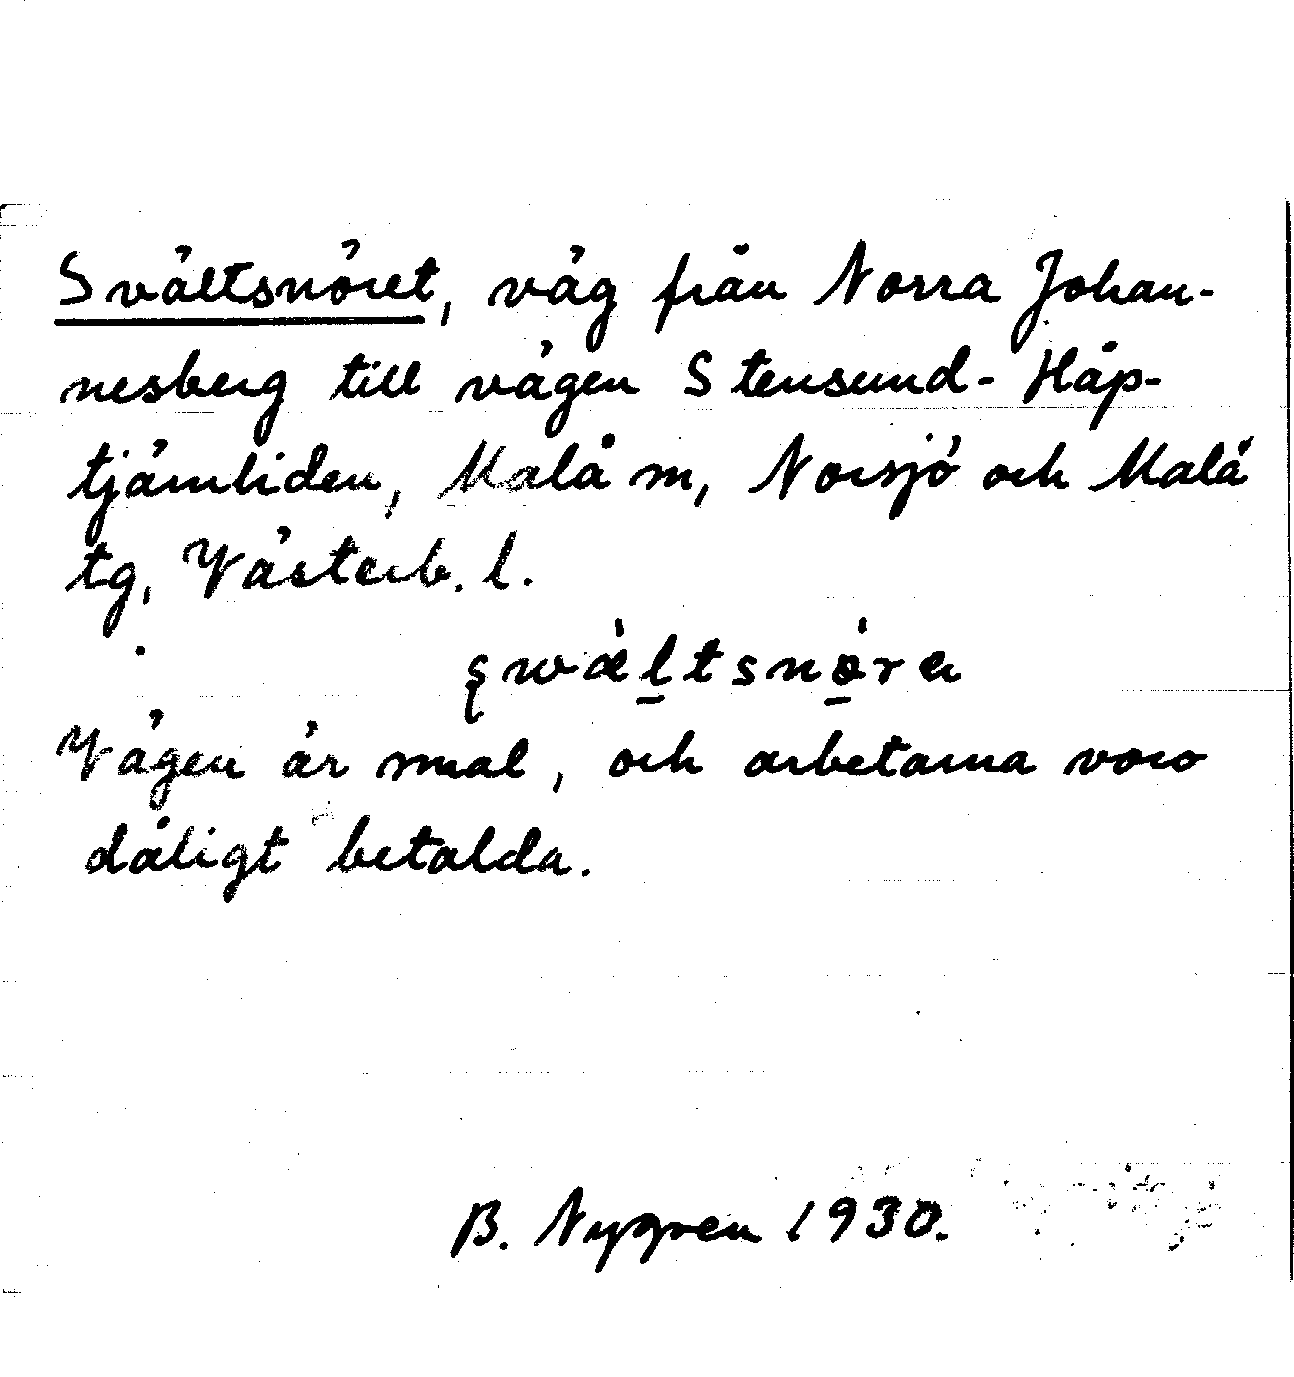 Svältsnöret, väg från Norra Johan-
nesberg till vägen Stensund - Håp-
tjärnliden, Malå m, Norsjö och Malå
tg, Västerb. l.
swältsnöra
Vägen är smal, och arbetarna voro
dåligt betalda.
B. Nygren 1930.